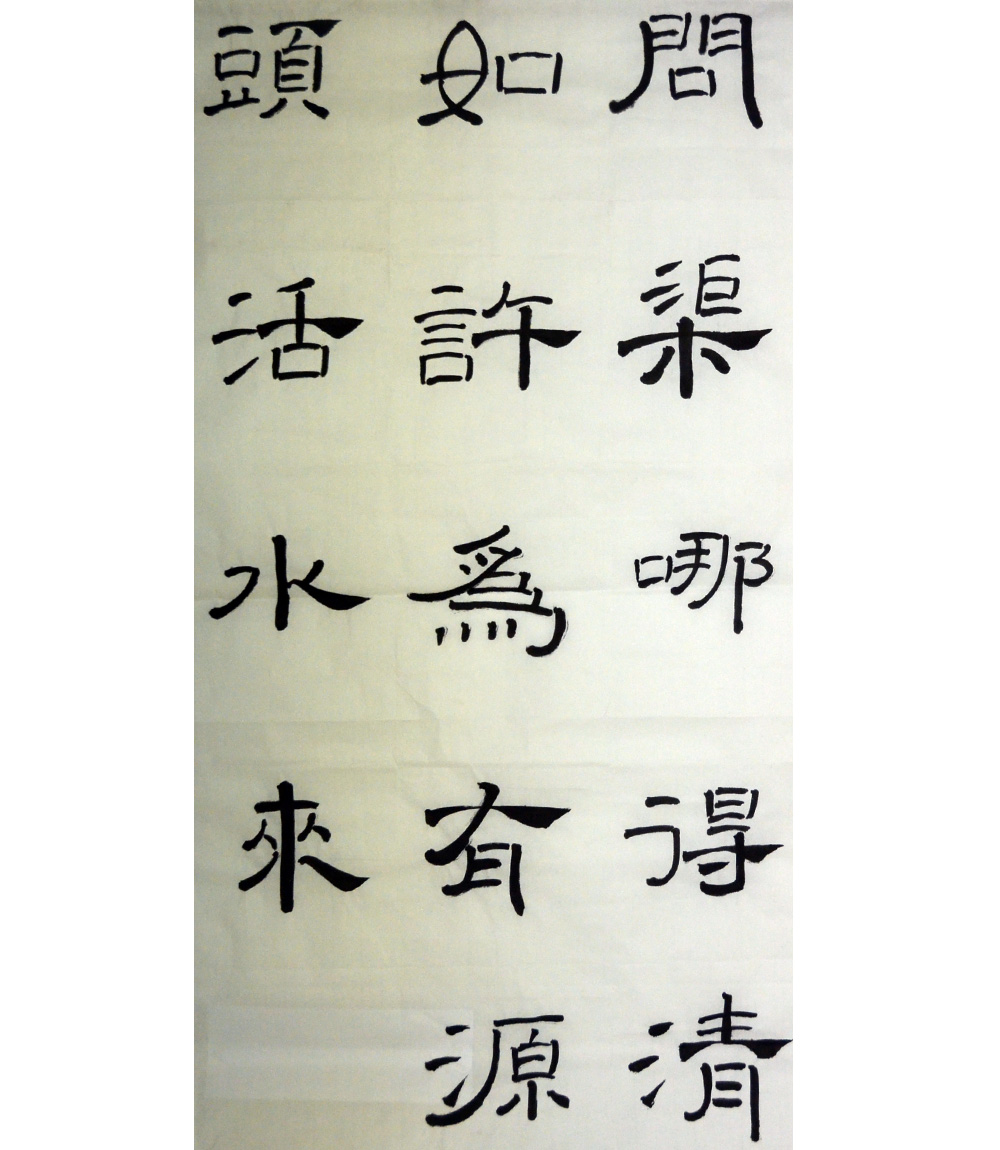 問渠哪得清
如許為有源
頭活水來